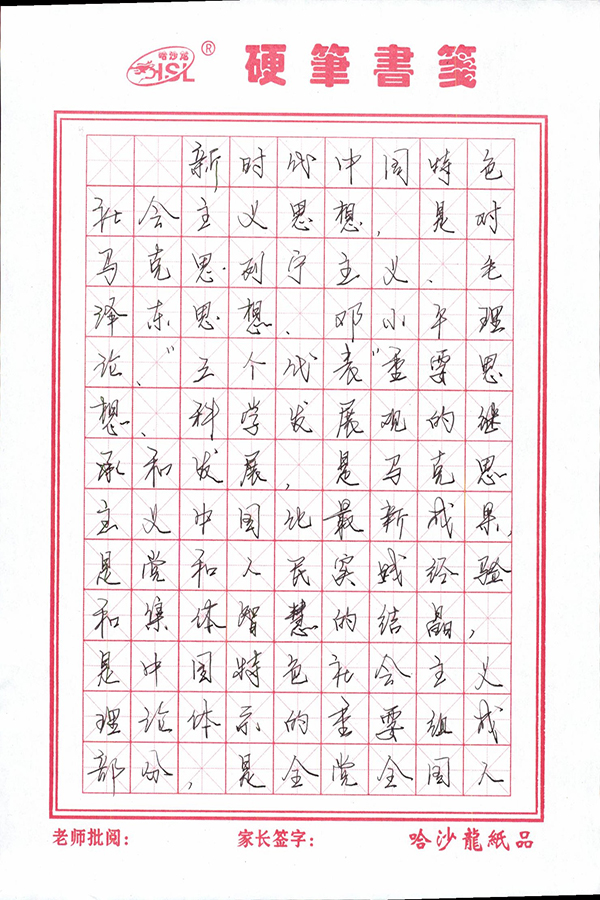 哈沙龙
HSL®
硬筆書箋
新时代中国特色
社会主义思想，是对
马克思列宁主义、毛
泽东思想、邓小平理
论、“三个代表”重要思
想、科学发展观的继
承和发展，是马克思
主义中国化最新成果，
是党和人民实践经验
和集体智慧的结晶，
是中国特色社会主义
理论体系的重要组成
部分，是全党全国人
老师批阅： 家长签字： 哈沙龍紙品